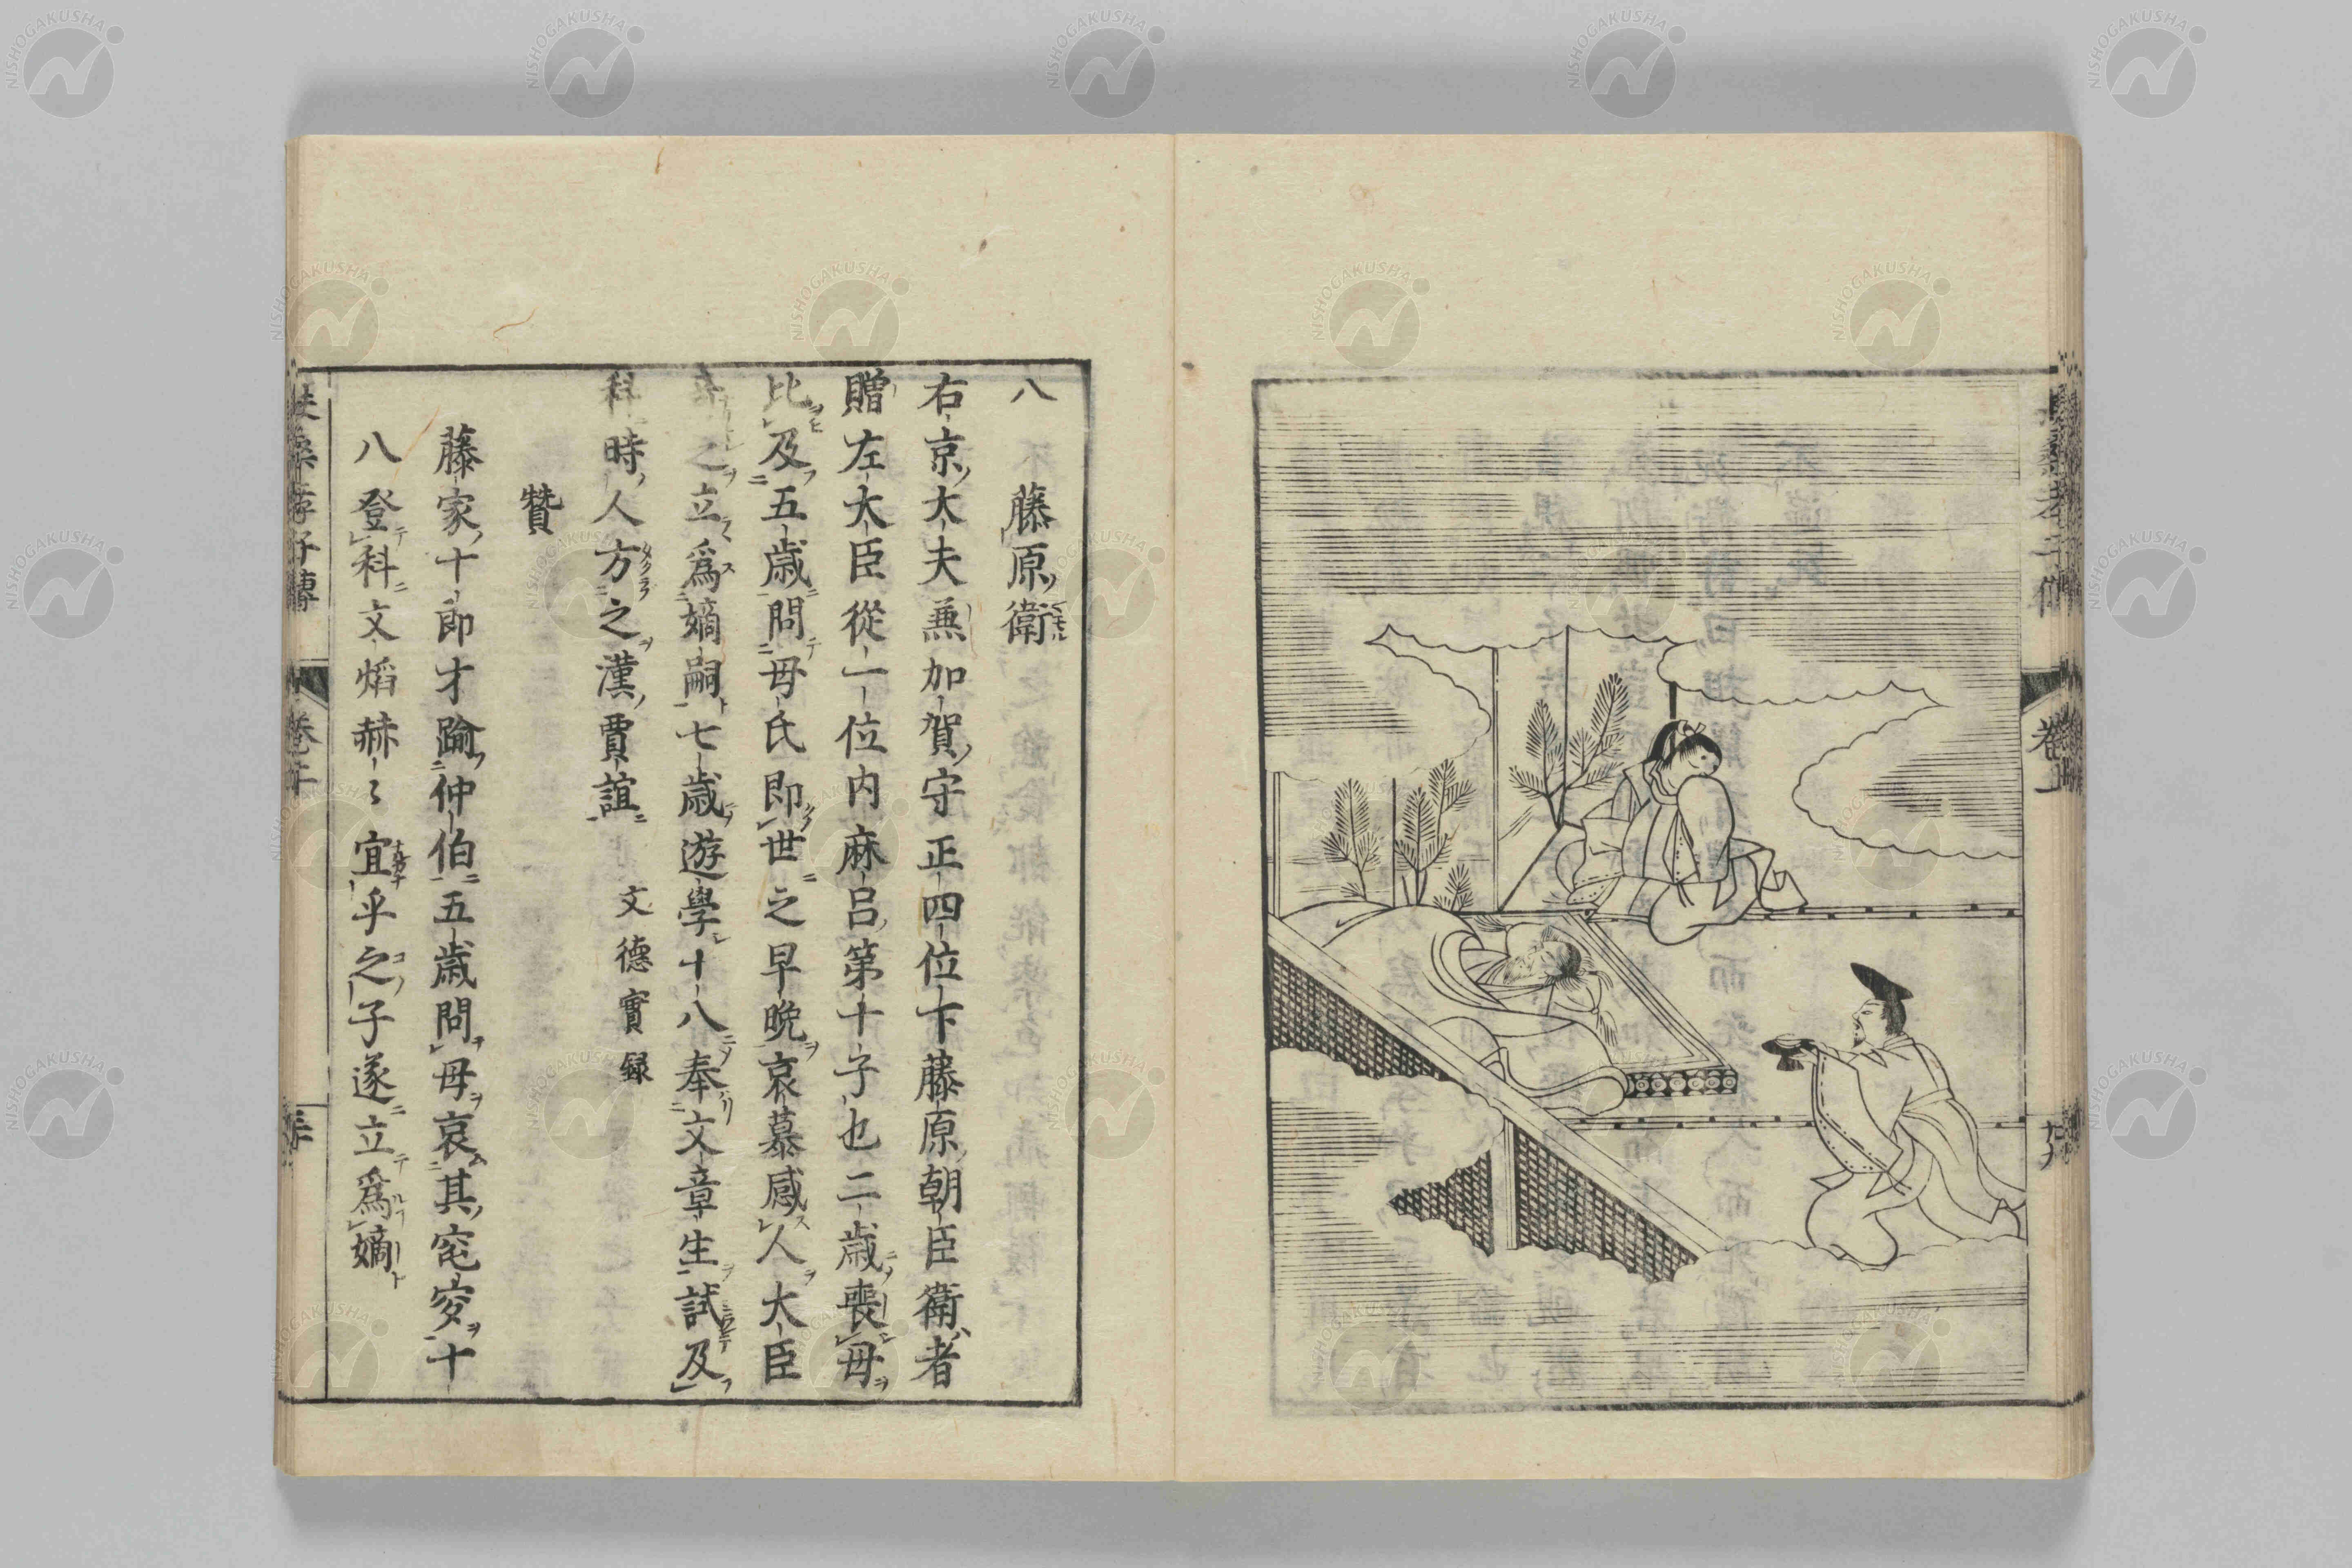 八　藤原衛
右京大夫兼加賀守正四位下藤原朝臣衛者
贈左大臣從一位内麻呂第十子也二歳喪母
比及五歳問母氏即世之早晩哀慕感人大臣
之立爲嫡嗣七歳遊學十八奉文章生試及
科時人方之漢賈誼　文德實録
贊
藤家十郎才踰仲伯五歳問母哀其窀穸十
八登科文焰赫〻宜乎之子遂立爲嫡
NISHOGAKUSHA